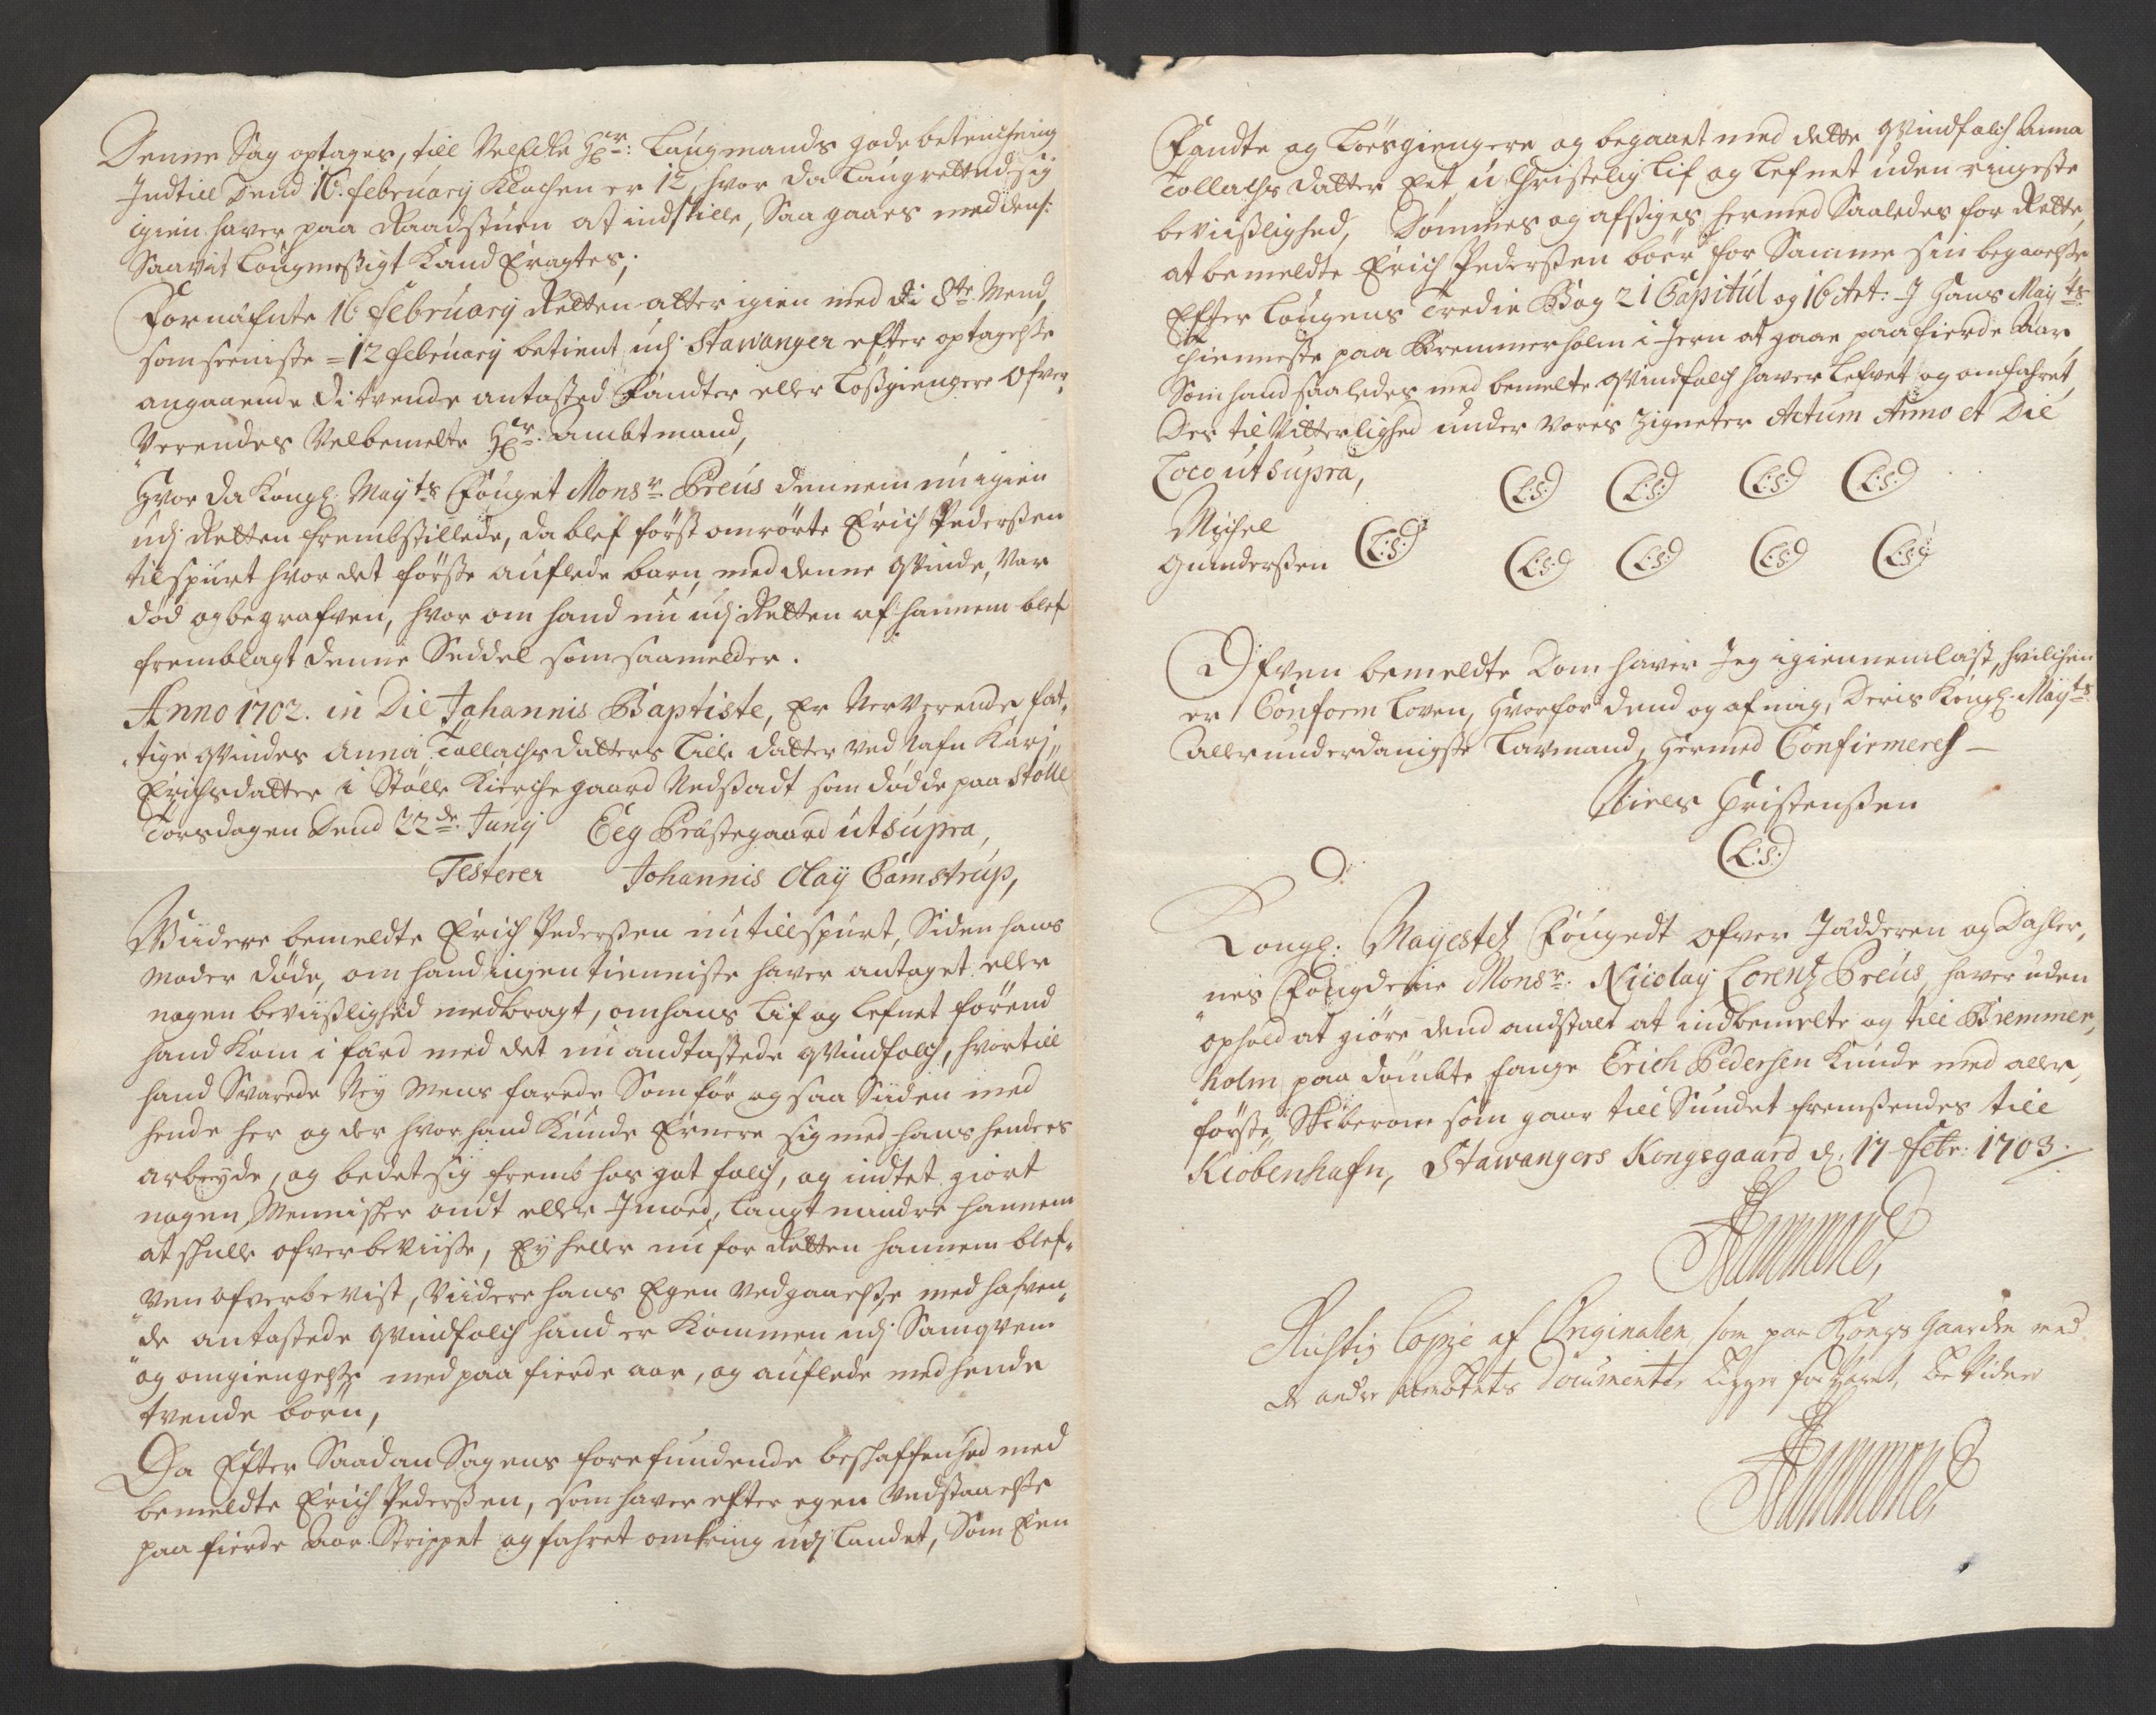 Denne Sag optages, till Velb:te Hr: Laugmands gode betenchning
Indtill Dend 16. february Klochen er 12, hvor da Laugrettned sig
igien haver paa Raadstuen at indstille, Saa gaaes med dens:
Saavit Lougmessigt Kand Eragtes;
Fornäfnte 16 february Retten atter igien med di 8te Mend,
som seeniste = 12 february betient udj Stawanger efter optagelsse
angaaende di tvende antasted Fandter eller Løssgiengere Ofver-
"Verendes Velbemelte Hr: Ambtmand,
Hvor da Kongl: Mayts Fouget Monsr Preus dennem nu igien
udj Retten frembstillede, da blef först omrörte Erich Pederssen
tilspurt hvor det förste auflede barn, med denne Qvinde, Var
död og begrafven, hvor om hand nu udj Retten af hannem blef
fremblagt denne Seddel som saa melder.
Anno 1702. in Die Johannis Baptiste, Er Nerverende fat-
"tige Qvindes Anna Tollachs datters Lille datter ved Nafn Karj
Erichsdatter i Stolle Kierchegaard Nedssadt som dødde paa Stolle
Torsdagen Dend 22de Junj Eeg Prästegaard utsupra,
Testerer Johannis Olaÿ Gamstrup,
Viidere bemeldte Erich Pederssen nu tillspurt, Siden hans
Moder døde, om hand ingen tienniste haver antaget eller
nogen bevisslighed medbragt, om hans Lif og Lefnet förend
hand Kom i färd med det nu andtastede qvindfolch, hvortill
hand Svarede Ney Mens farede Som för og saa Siiden med
hende her og der hvor hand Kunde Ernere sig med hans henders
arbeyde, og bedet sig fremb hos got folch, og indtet giort
nogen Mennisher ondt eller Imoed, Langt mindre hannem
at shulle ofverbeviisse, Ey heller nu for Retten hannem blef-
"ven ofverbevist, Viidere hans Egen Vedgaaelsse med hafven-
"de antastede qvindfolch hand er Kommen udj Samqvem
"og omgiengelsse med paa fierde aar, og auflede med hende
tvende börn,
Da Efter Saadan Sagens forefundende beshaffenhed med
bemeldte Erich Pederssen, som haver efter egen Vedstaaelsse
paa fierde Aar Strippet og fahret omkring udj Landet, Som Een
Fandte og Löesgiengere og begaaet med dette Qvindfolch Anna
Tollachs datter Eet u Christelig Lif og Lefnet uden ringeste
beviisslighed, Dömmes og afssiges hermed Saaledes for Rette,
at bemeldte Erich Pederssen böer for Samme sin begaaelsse
Efter Lougens Tredie Bog 21 Capitul og 16 Art: I Hans Mayts
Tienneste paa Bremmerholm i Jern at gaae paa fierde Aar,
Som hand saaledes med bemelte qvindfolch haver Lefvet og omfahret,
Des til Vitterlighed under Vores Zigneter Actum Anno et Die
Loco utsupra,
Michel
Gunderssen
L:S: L:S: L:S: L:S:
L:S: L:S: L:S: L:S: L:S:
Ofven bemeldte Dom haver Jeg igiennemläst, hvilchen
er Conform Loven, Hvorfor dend og af mig, Deris Kongl: Mayts
allerunderdanigste Lavmand, hermed Confirmeres —
Niels Christenssen
L:S:
Kongl: Mayestes Fougedt ofver Jädderen og Dahler-
"nes Fougderie Monsr: Nicolay Lorentz Preus, haver uden
"ophold at giöre dend anstalt at indbemelte og till Bremmer-
"holm paa dömbte fange Erich Pedersen Kunde med aller-
förste Skiberom som gaar till Sundet fremssendes till
Kiobenhafn, Stawangers Kongsgaard d: 17 Febr: 1703.
Hammond
Rigtig Copie af Originalen, som paa Kongs Gaarden med
de andre Ambtets Documenter Ligger forvaret, bevidner
Hammond